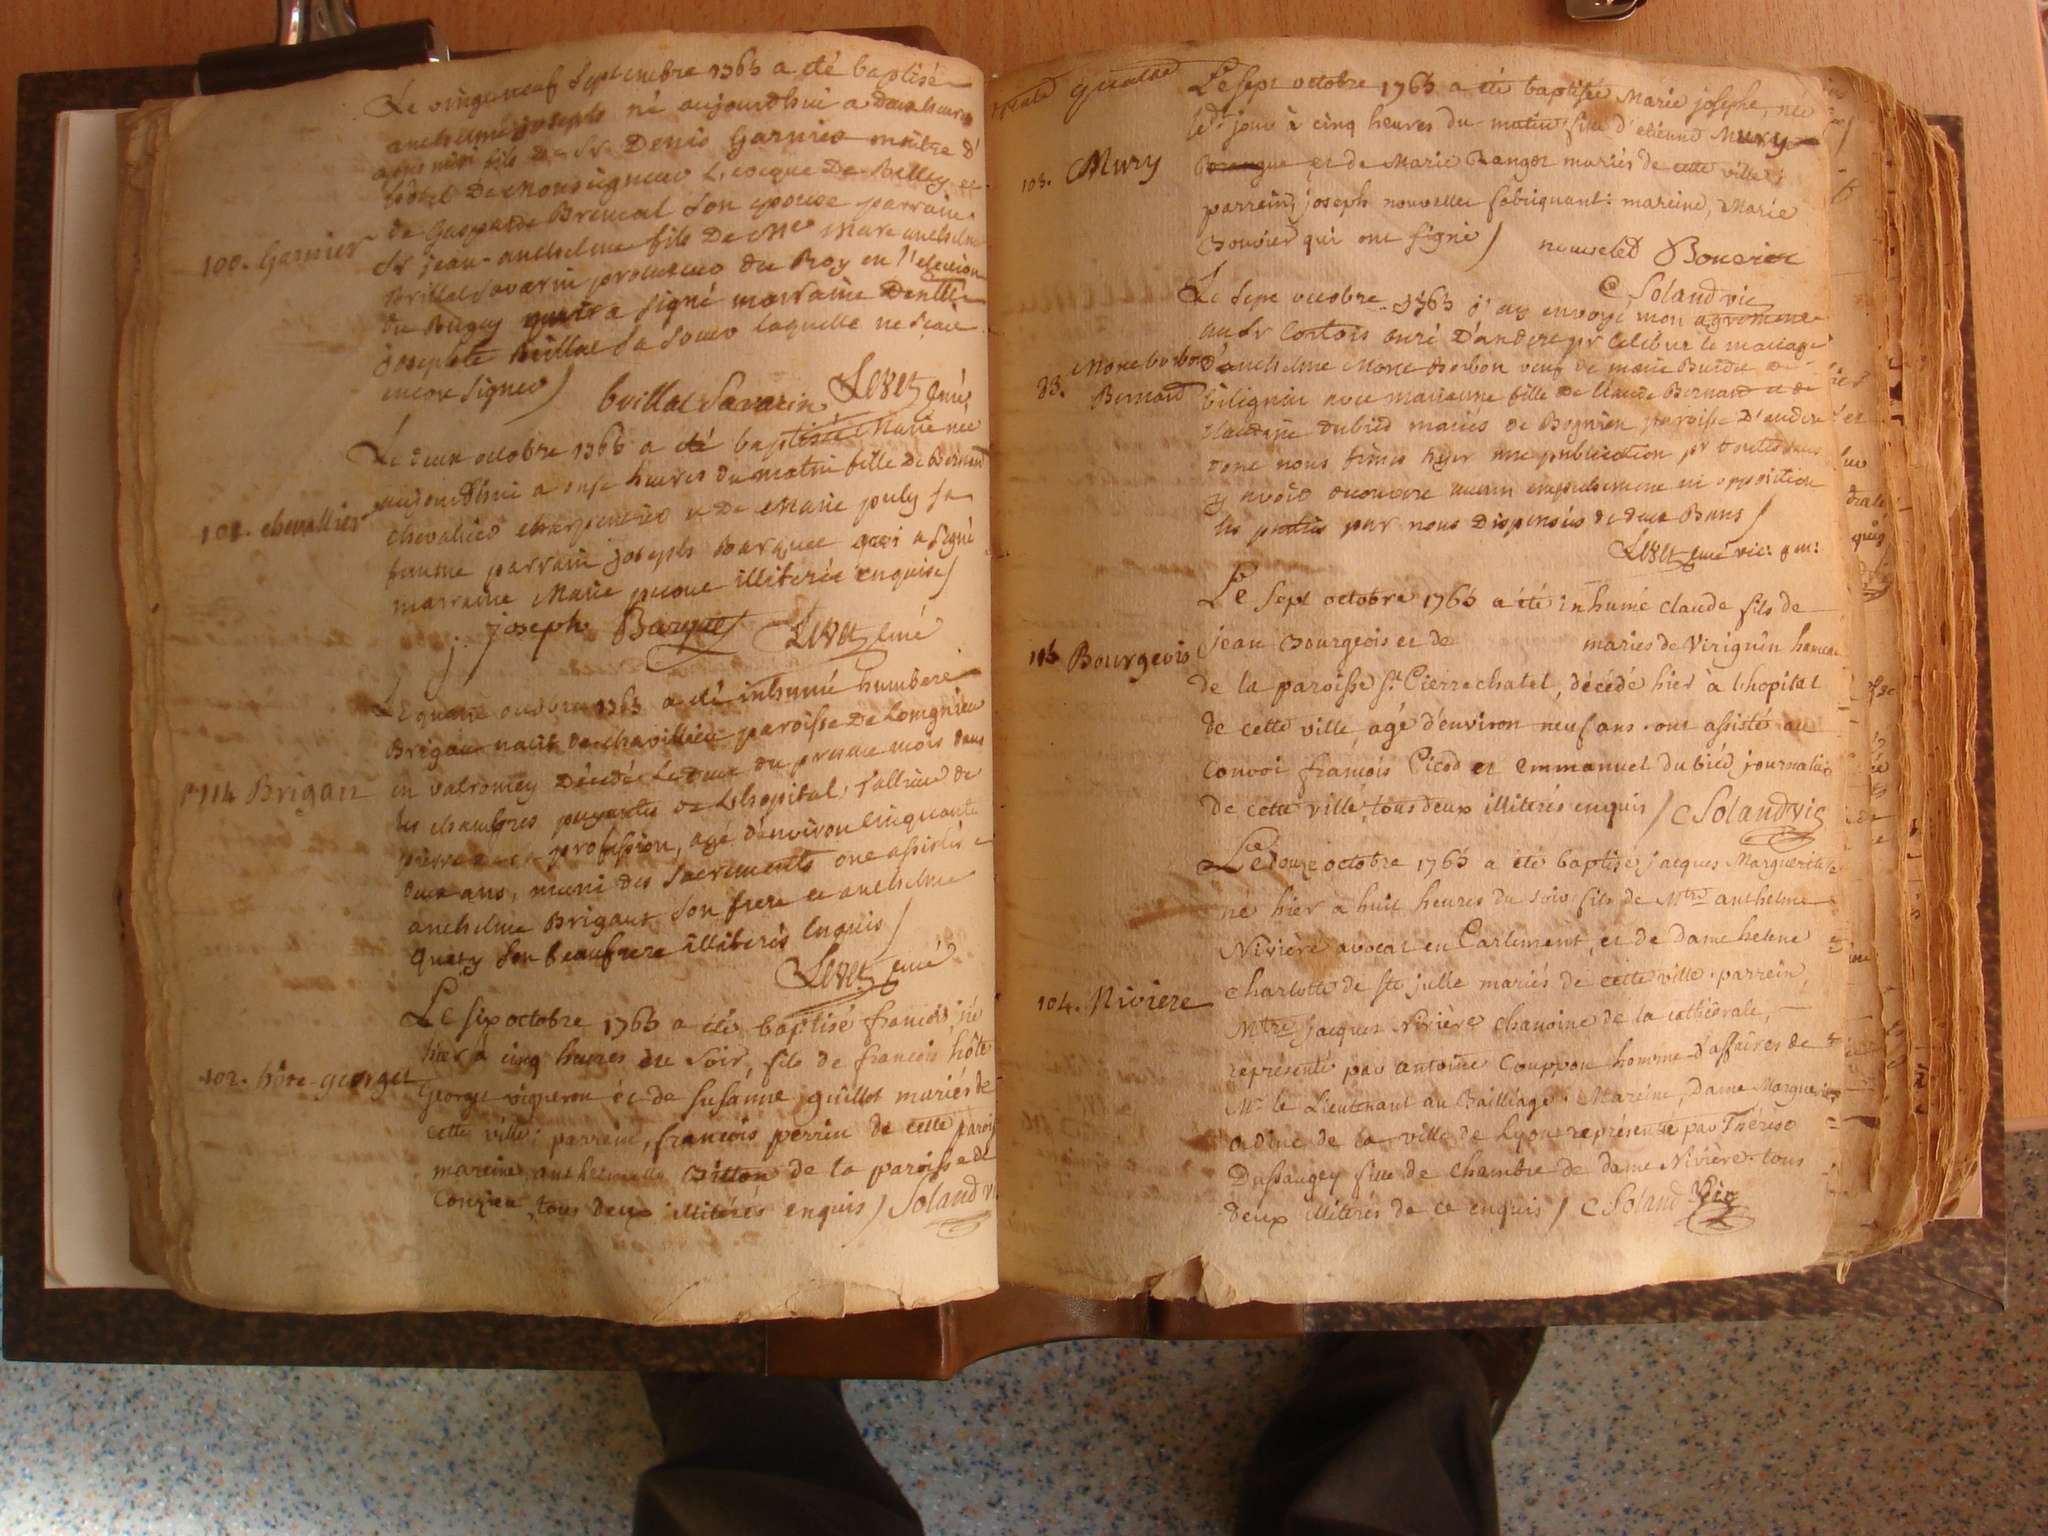 Le vingt neuf Septembre 1763 a eté baptisé
anthelme joseph né aujourdhui a deux heures
fils de Sr Denis Garnier maitre d'
hôtel De Monseigneur L'evêque De Belley et
de Gasparde Breneal son epouse parrain
100. Garnier
Sr jean-anthelme fils De Me Marc anthelme
Brillat Savarin procureur du Roy en l'election
du Bugey qui a signé marraine Denise
josephte Brillat Sa Soeur laquelle ne scait
encore signer /
brillat Savarin Levet curé
Le deux octobre 1763 a eté baptisée Marie née
aujourdhui a onse heures du matin fille De Bernard
101. chevallier
chevalier charpentier et De Marie puly sa
femme parrain joseph Barquet qui a signé
marraine Marie illiterée enquise /
j. joseph Barquet Levet curé
Le quatre octobre 1763 a eté inhumé humbert
Brigan natif de chavillieu paroisse De Lompnieu
en valromey Décédé Le deux du present mois dans
114 Brigan
les chambres payantes de l'hopital, tallieur de
pierre de profession, agé d'environ cinquante
deux ans, muni des Sacrements ont assistés
anthelme Brigant son frere et anthelme
Quety Son beaufrere illiterés Enquis /
Levet curé
Le six octobre 1763 a eté baptisé francois, né
hier à cinq heures du soir, fils de francois hôte
102. hôte-george
George vigneron et de susanne guillot mariés de
cette ville: parrein, francois perrin de cette paroisse
mareine, anthelmette Billon de la paroisse de
Conzieu, tous deux illiterés enquis / Soland vic
quatre
Le sept octobre 1763 a eté baptisée Marie josephe, née
led. jour à cinq heures du matin fille d'etienne Mury
103. Mury
et de Marie Rangot mariés de cette ville;
parrein, joseph nouvellet fabriquant: mareine, Marie
Bouvier qui ont signé / nouvelet Bouvier
C Soland vic
Le Sept octobre 1763 j'ay envoyé mon agrement
au Sr Contois curé D'andert pr celebrer le mariage
83. Morel borbon Bernard
d'anthelme Morel Borbon veuf de marie Buride de
bilignin avec marianne fille de Claude Bernard et de
Claudine Dubied mariés de Bognien paroisse D'andert
dont nous fimes hyer une publication pr toutes sans
y avoir decouvert aucun empechement ni opposition
les parties par nous dispensées de deux Bans /
Levet curé vic: gen:
Le sept octobre 1763 a été inhumé claude fils de
115 Bourgeois
jean Bourgeois et de mariés de Virignin hameau
de la paroisse St. Pierrechatel, décédé hier à lhopital
de cette ville, agé d'environ neuf ans. ont assisté au
convoi francois Picod et Emmanuel dubiéd journaliers
de cette ville, tous deux illiterés enquis / C Soland vic
Le douze octobre 1763 a eté baptisé jacques Marguerite
né hier a huit heures du soir fils de Mtre anthelme
Nivière avocat en Parlement, et de dame helene
charlotte de ste julle mariés de cette ville: parrein,
104. Niviere
Mtre jacques Nivière chanoine de la cathédrale,
représenté par antoine Couppon homme d'affaires de
Mr le Lieutenant au Bailliage. Mareine, Dame Marguerite
adine de la ville de Lyon représentée par Thérèse
Dussaugey fille de chambre de dame Nivière. tous
deux illiterés de ce enquis / C Soland Vic